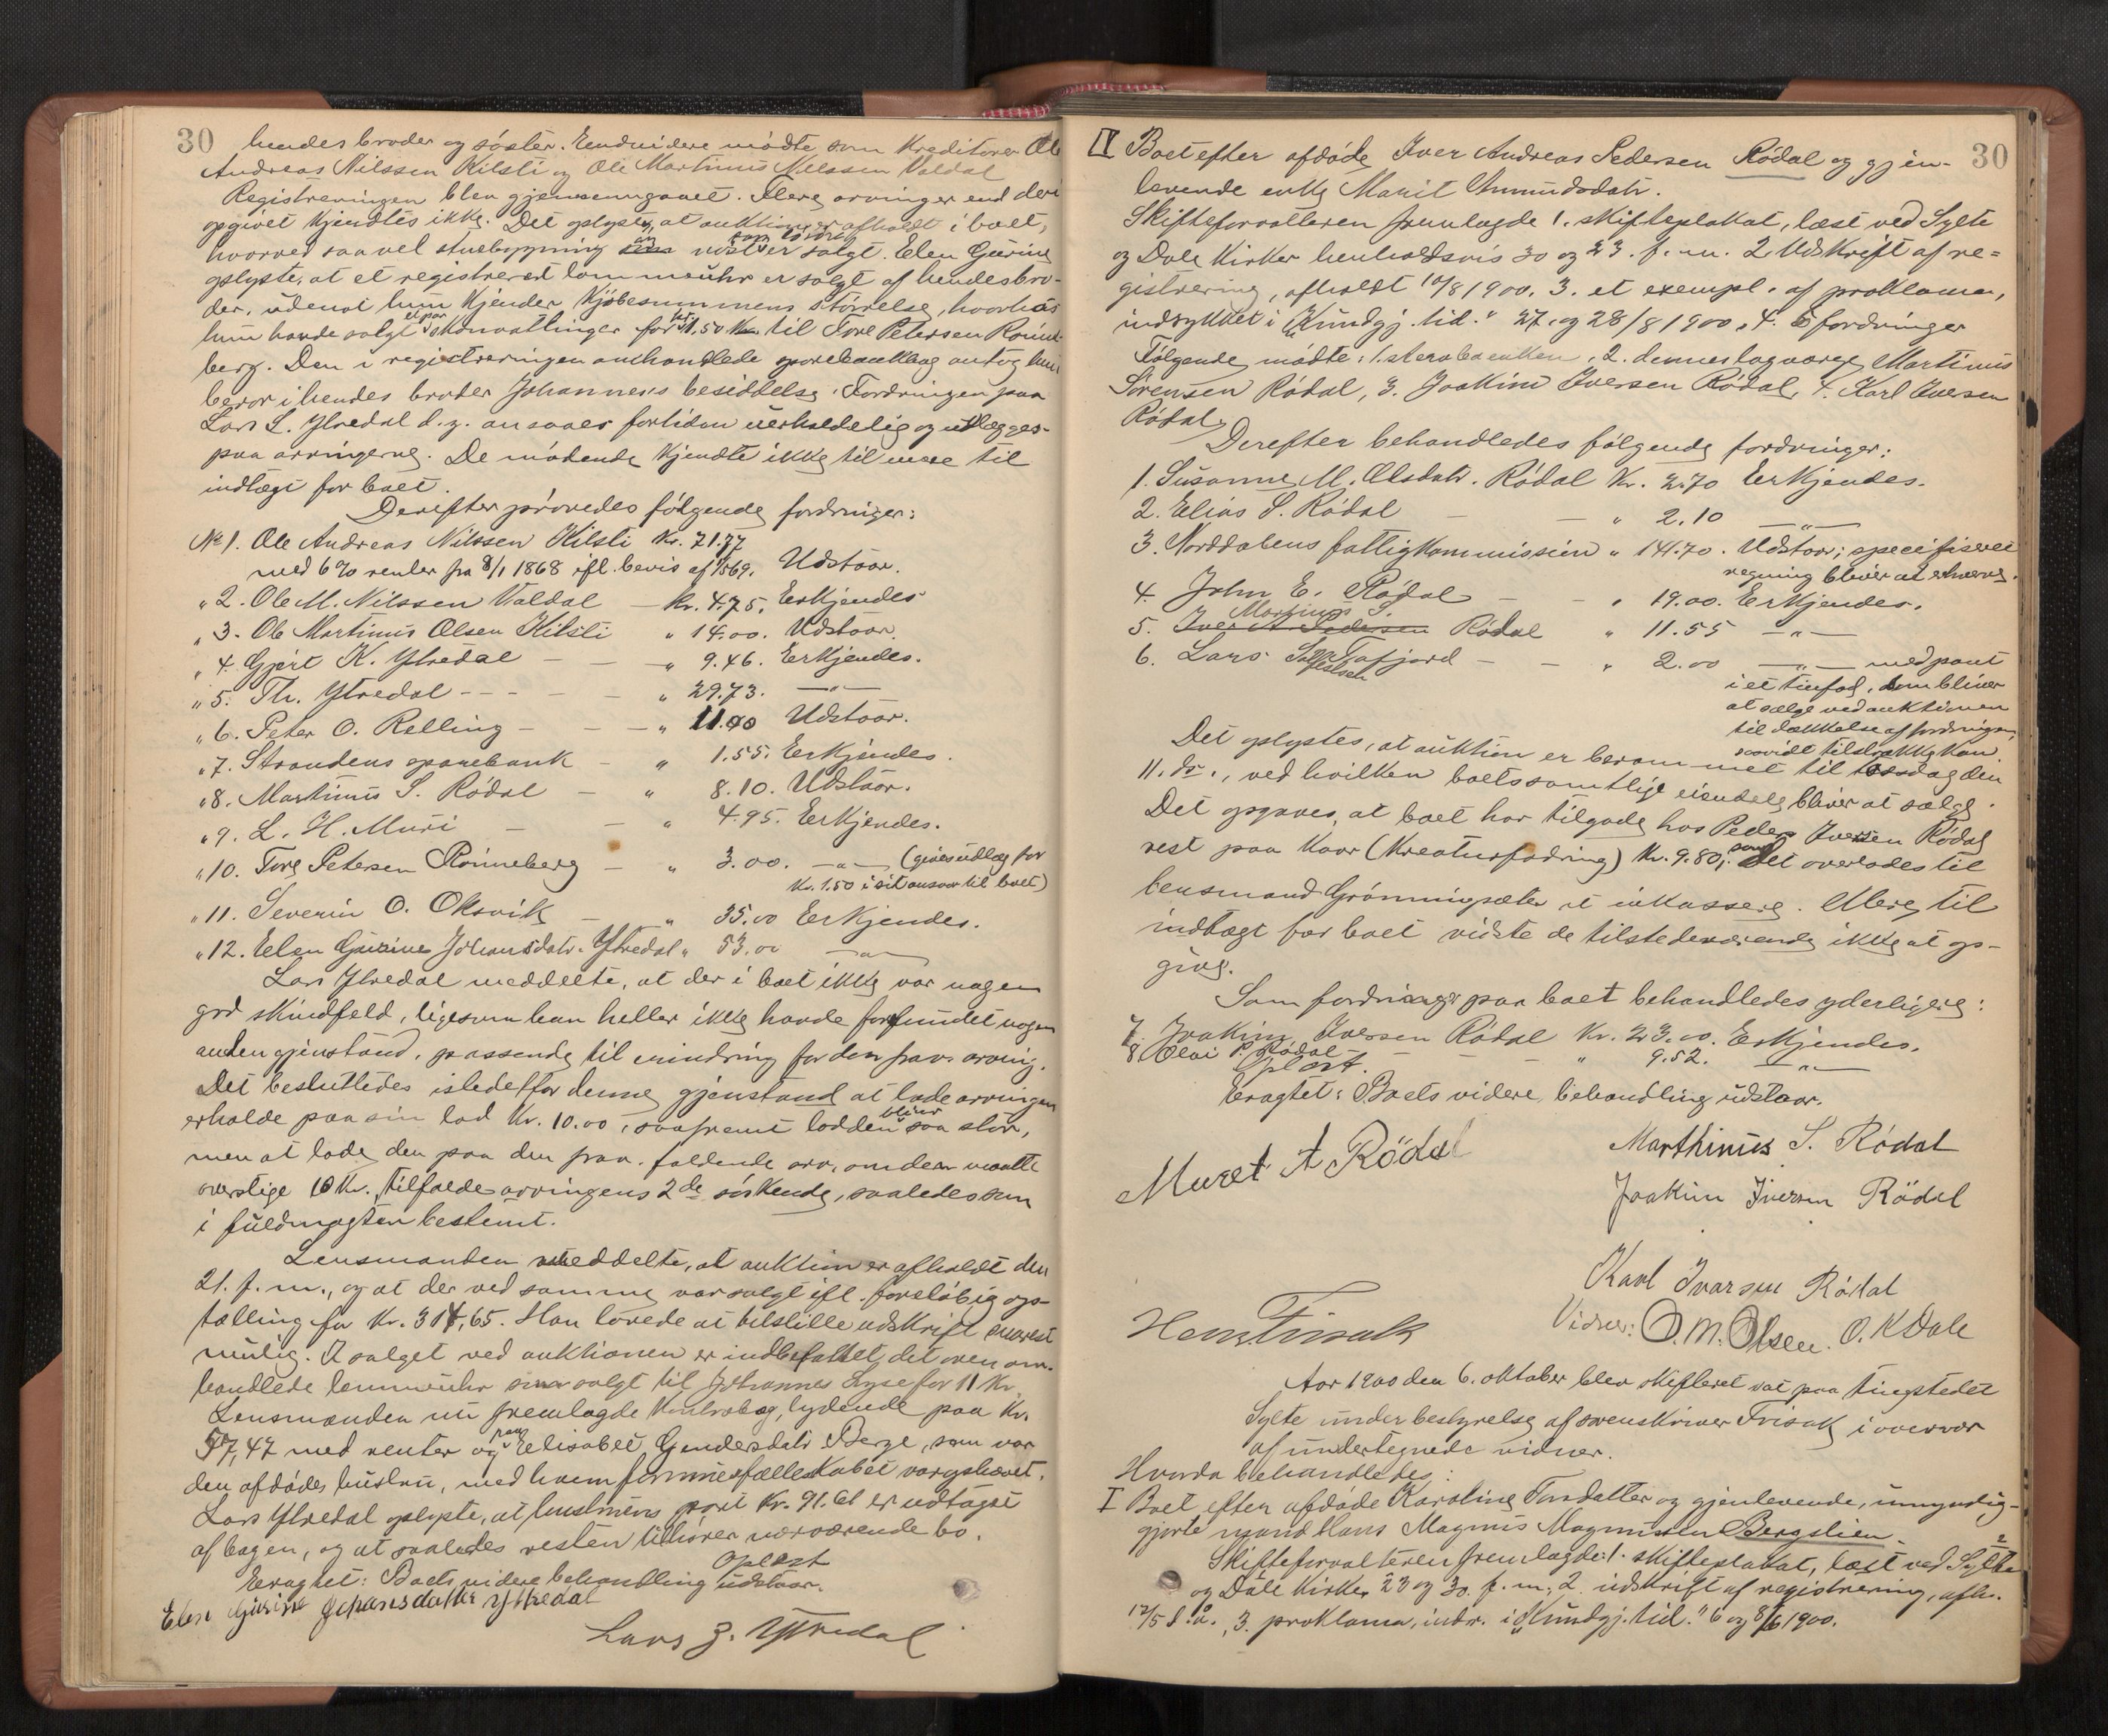 30
hendes broder og söster. Endvidere mödte som kreditorer Ole
Andreas Nilssen Kilsti og Ole Martinus Nilssen Valdal
Registreringen blev gjennemgaaet. Flere arvinger end deri
opgivet kjendtes ikke. Det oplystes, at auktion er afholdt i boet,
hvorved saavel stuebygning som löst er solgt. Elen Gurine
oplyste, at et registreret lommeuhr er solgt af hendes bro-
der, uden at hun kjender kjöbesummens störrelse, hvorhos
hun havde solgt et par skindvattinger for kr. 1.50 til Tore Petersen Rönne-
berg. Den i registreringen omhandlede sparebankbog antog hun
beror i hendes broder Johannes's besiddelse. Fordringen paa
Lars L. Ytredal d. y. ansaaes fortiden uerholdelig og udlægges
paa arvingerne. De mödende kjendte ikke til mere til
indtægt for boet.
Derefter prövedes fölgende fordringer:
No 1. Ole Andreas Nilssen Kilsti Kr. 71.77
med 6% renter fra 8/1 1868 ifl. bevis af 1869. Udstaar.
" 2. Ole M. Nilssen Valdal — Kr. 4.75. Erkjendes
" 3. Ole Martinus Olsen Kilsti " 14.00. Udstaar.
" 4. Gjert K. Ytredal — — " 9.46. Erkjendes.
" 5. Th. Ytredal - - - — " 29.73. — " —
" 6. Peter O. Relling — — " 11.00 Udstaar.
" 7. Strandens sparebank — " 1.55. Erkjendes.
" 8. Martinus S. Rödal — " 8.10. Udstaar.
" 9. L. H. Muri — — " 4.95. Erkjendes.
" 10. Tore Petersen Rönneberg — " 3.00. — " — (gives udlæg for
Kr. 1.50 i sit ansvar til boet)
" 11. Severin O. Oksvik — " 35.00 Erkjendes.
" 12. Elen Gurine Johansdatr. Ytredal " 53.00 — " —
Lars Ytredal meddelte, at der i boet ikke var nogen
god skindfeld, ligesom han heller ikke havde forefundet nogen
anden gjenstand, passende til mindring for den frav. arving.
Det besluttedes istedetfor denne gjenstand at lade arvingen
erholde paa sin lod Kr. 10.00, saafremt lodden bliver saa stor,
men at lade den paa den frav. faldende arv, om den maatte
overstige 10 Kr., tilfalde arvingens 2de söskende, saaledes som
i fuldmagten bestemt.
Lensmanden meddelte, at auktion er afholdt den
21. f. m., og at der ved samme var solgt ifl. foreløbig op-
tælling for Kr. 314,65. Han lovede at tilstille udskrift snarest
mulig. I salget ved auktionen er indbefattet det oven om-
handlede lommeuhr solgt til Johannes Lyse for 11 Kr.
Lensmanden nu fremlagde Kontrabog, lydende paa Kr.
57,47 med renter og paa Elisabet Gjendersdatr Berge, som var
den afdödes hustru, med hvem formuesfællesskabet var ophævet.
Lars Ytredal oplyste, at hustruens part Kr. 91.61 er udtaget
af bogen, og at saaledes resten tilhører nærværende bo.
Oplæst
Eragtet: Boets videre behandling udstaar.
Elen Gurine Johansdatter Ytredal
Lars J. Ytredal
30
IV Boet efter afdöde Iver Andreas Pedersen Rödal og gjen-
levende enke Marit Amundsdatr.
Skifteforvalteren fremlagde 1. skifteplakat, læst ved Sylte
og Dale Kirker henholdsvis 30 og 23. f. m. 2. Udskrift af re=
gistrering, afholdt 10/8 1900. 3. et exempl. af proklama,
indrykket i "Kundgj. tid." 27. og 28/8 1900. 4. 6 fordringer
Fölgende mödte: 1. sterboenken, 2. dennes lagværge Martinus
Sörensen Rödal, 3. Joakim Iversen Rödal, 4. Karl Iversen
Rödal.
Derefter behandledes fölgende fordringer:
1. Susanne M. Olsdatr. Rödal Kr. 2.70 Erkjendes.
2. Elias S. Rödal — — " 2.10 — " —
3. Norddalens fattigkommission " 141.70. Udstaar; specifiseret
regning bliver at erhverve.
4. John E. Rödal — — " 19.00. Erkjendes.
Martinus S.
5. Iver A. Pedersen Rödal " 11.55 — " —
6. Lars Tafjord — — " 2.00 — " — med pant
i et tinfad, som bliver
at sælge ved auktionen
til dækkelse af fordringen,
saavidt tilstrække kan.
Det oplystes, at auktion er berammet til torsdag den
11. ds., ved hvilken boets samtlige eiendele bliver at sælge.
Det opgaves, at boet har tilgode hos Peder Iversen Rödal
rest paa Kaar (Kreaturfodring) Kr. 9.80, som det overlodes til
lensmand Grönningsæter at inkassere. Mere til
indtægt for boet vidste de tilstedeværende ikke at op-
give.
Som fordringer paa boet behandledes yderligere:
7. Joakim Iversen Rödal Kr. 23.00. Erkjendes.
8. Olai P. Rödal — — " 9.52. — " —
Oplæst.
Eragtet: Boets videre behandling udstaar.
Maret A Rödal
Marthinus S. Rödal
Joakim Iversen Rödal
Karl Ivarsen Rödal
Hans Frisak
Vidner: O. M. Olsen. O. K Dale
Aar 1900 den 6. oktober blev skifteret sat paa tingstedet
Sylte under bestyrelse af sorenskriver Frisak i overvær
af undertegnede vidner.
Hvorda behandledes:
I Boet efter afdöde Karoline Torsdatter og gjenlevende, umyndig-
gjorte mand Hans Magnus Magnussen Bergslien.
Skifteforvalteren fremlagde: 1. skifteplakat, læst ved Sylte
og Dale Kirke 23 og 30. f. m., 2. udskrift af registrering, afh.
12/5 d. a., 3. proklama, indr. i "Kundgj. tid." 6 og 8/6 1900.